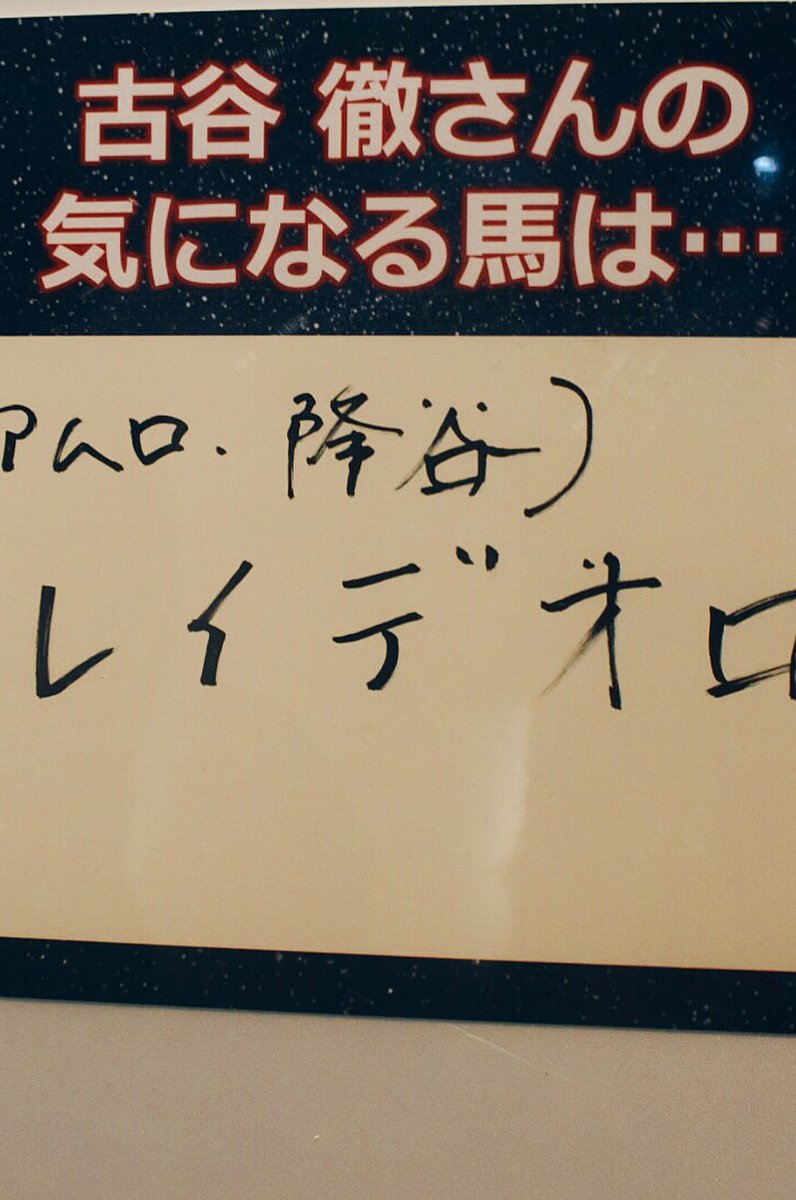 古谷 徹さんの
気になる馬は…
アムロ. 降谷)
レイデオロ